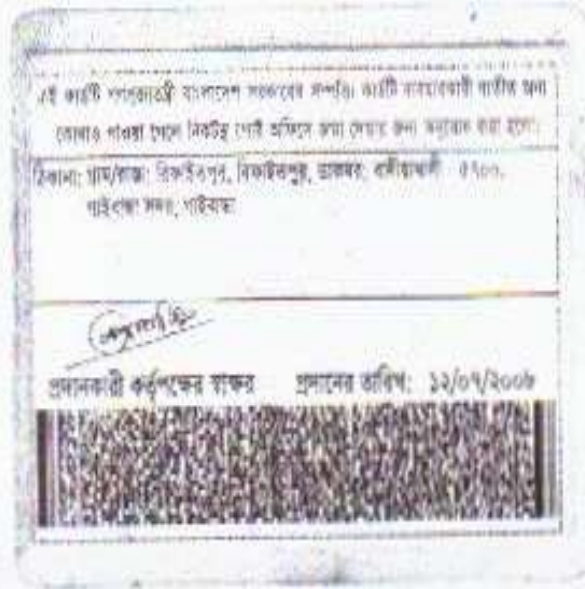 এই কার্ডটি গণপ্রজাতন্ত্রী বাংলাদেশ সরকারের সম্পত্তি। কার্ডটি ব্যবহারকারী ব্যতীত অন্য
কোথাও পাওয়া গেলে নিকটস্থ পোস্ট অফিসে জমা দেবার জন্য অনুরোধ করা হলো।
ঠিকানা: গ্রাম/রাস্তা: ডাকঘর: ৫৭০০,
গাইবান্ধা সদর, গাইবান্ধা
প্রদানকারী কর্তৃপক্ষের স্বাক্ষর প্রদানের তারিখ: ১২/০৭/২০০৮